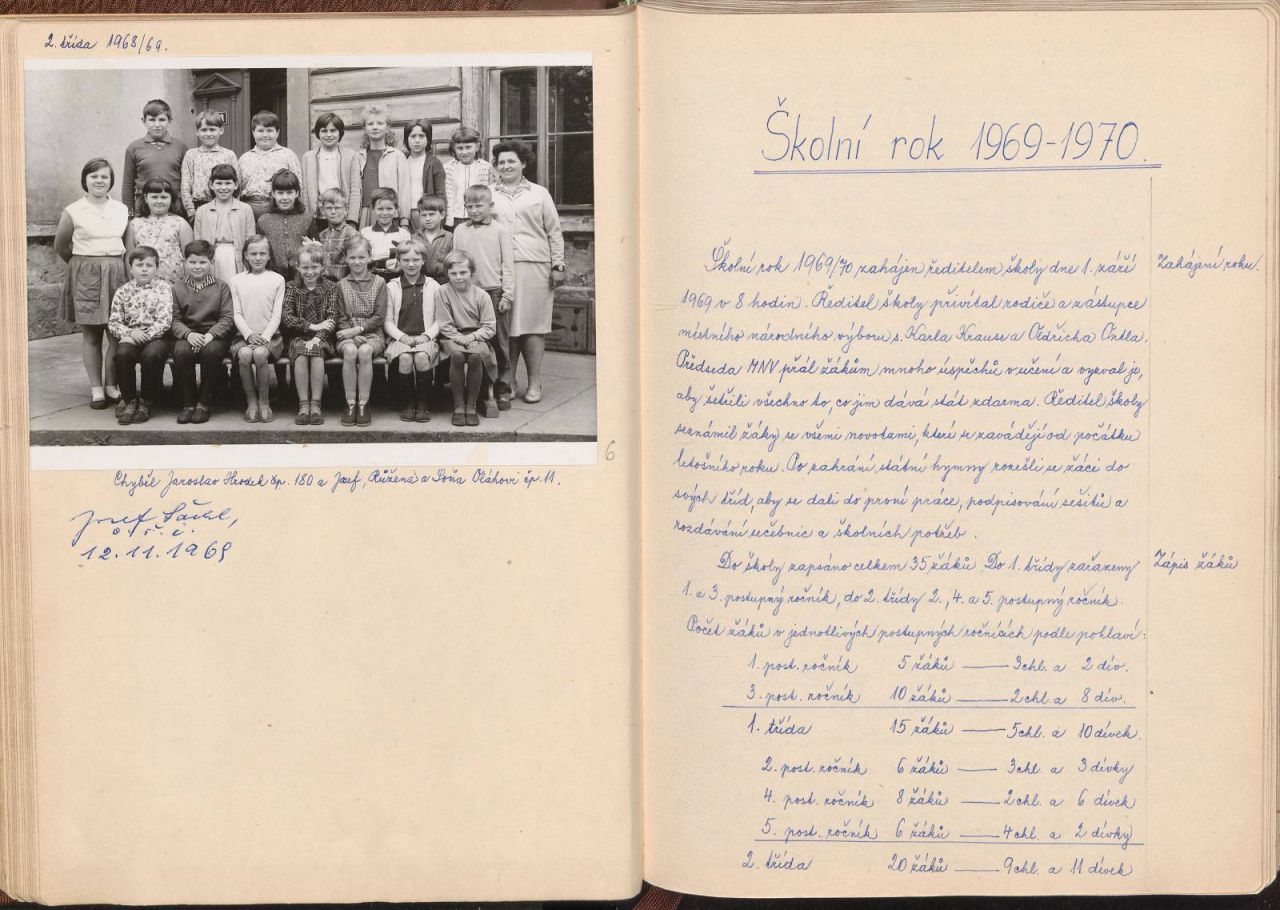 2. třída 1968/69.
6
Chyběl Jaroslav Hrodek čp. 180 a Josef, Růžena a Soňa Oláhovi čp. 11.
Josef
12.11.1969
Školní rok 1969-1970.
Školní rok 1969/70 zahájen ředitelem školy dne 1. září
Zahájení roku.
1969 v 8 hodin. Ředitel školy přivítal rodiče a zástupce
místního národního výboru s. Karla Krause a Oldřicha Ondla.
Předseda MNV přál žákům mnoho úspěchů v učení a vyzval je,
aby šetřili všechno to, co jim dává stát zdarma. Ředitel školy
seznámil žáky se všemi novotami, které se zavádějí od počátku
letošního roku. Po zahrání státní hymny rozešli se žáci do
svých tříd, aby se dali do první práce, podpisování sešitů a
rozdávání učebnic a školních potřeb.
Do školy zapsáno celkem 35 žáků. Do 1. třídy zařazeny
Zápis žáků
1. a 3. postupný ročník, do 2. třídy 2., 4. a 5. postupný ročník.
Počet žáků v jednotlivých postupných ročnících podle pohlaví:
1. post. ročník 5 žáků — 3 chl. a 2 dív.
3. post. ročník 10 žáků — 2 chl. a 8 dív.
1. třída 15 žáků — 5 chl. a 10 dívek.
2. post. ročník 6 žáků — 3 chl. a 3 dívky
4. post. ročník 8 žáků — 2 chl. a 6 dívek
5. post. ročník 6 žáků — 4 chl. a 2 dívky
2. třída 20 žáků — 9 chl. a 11 dívek